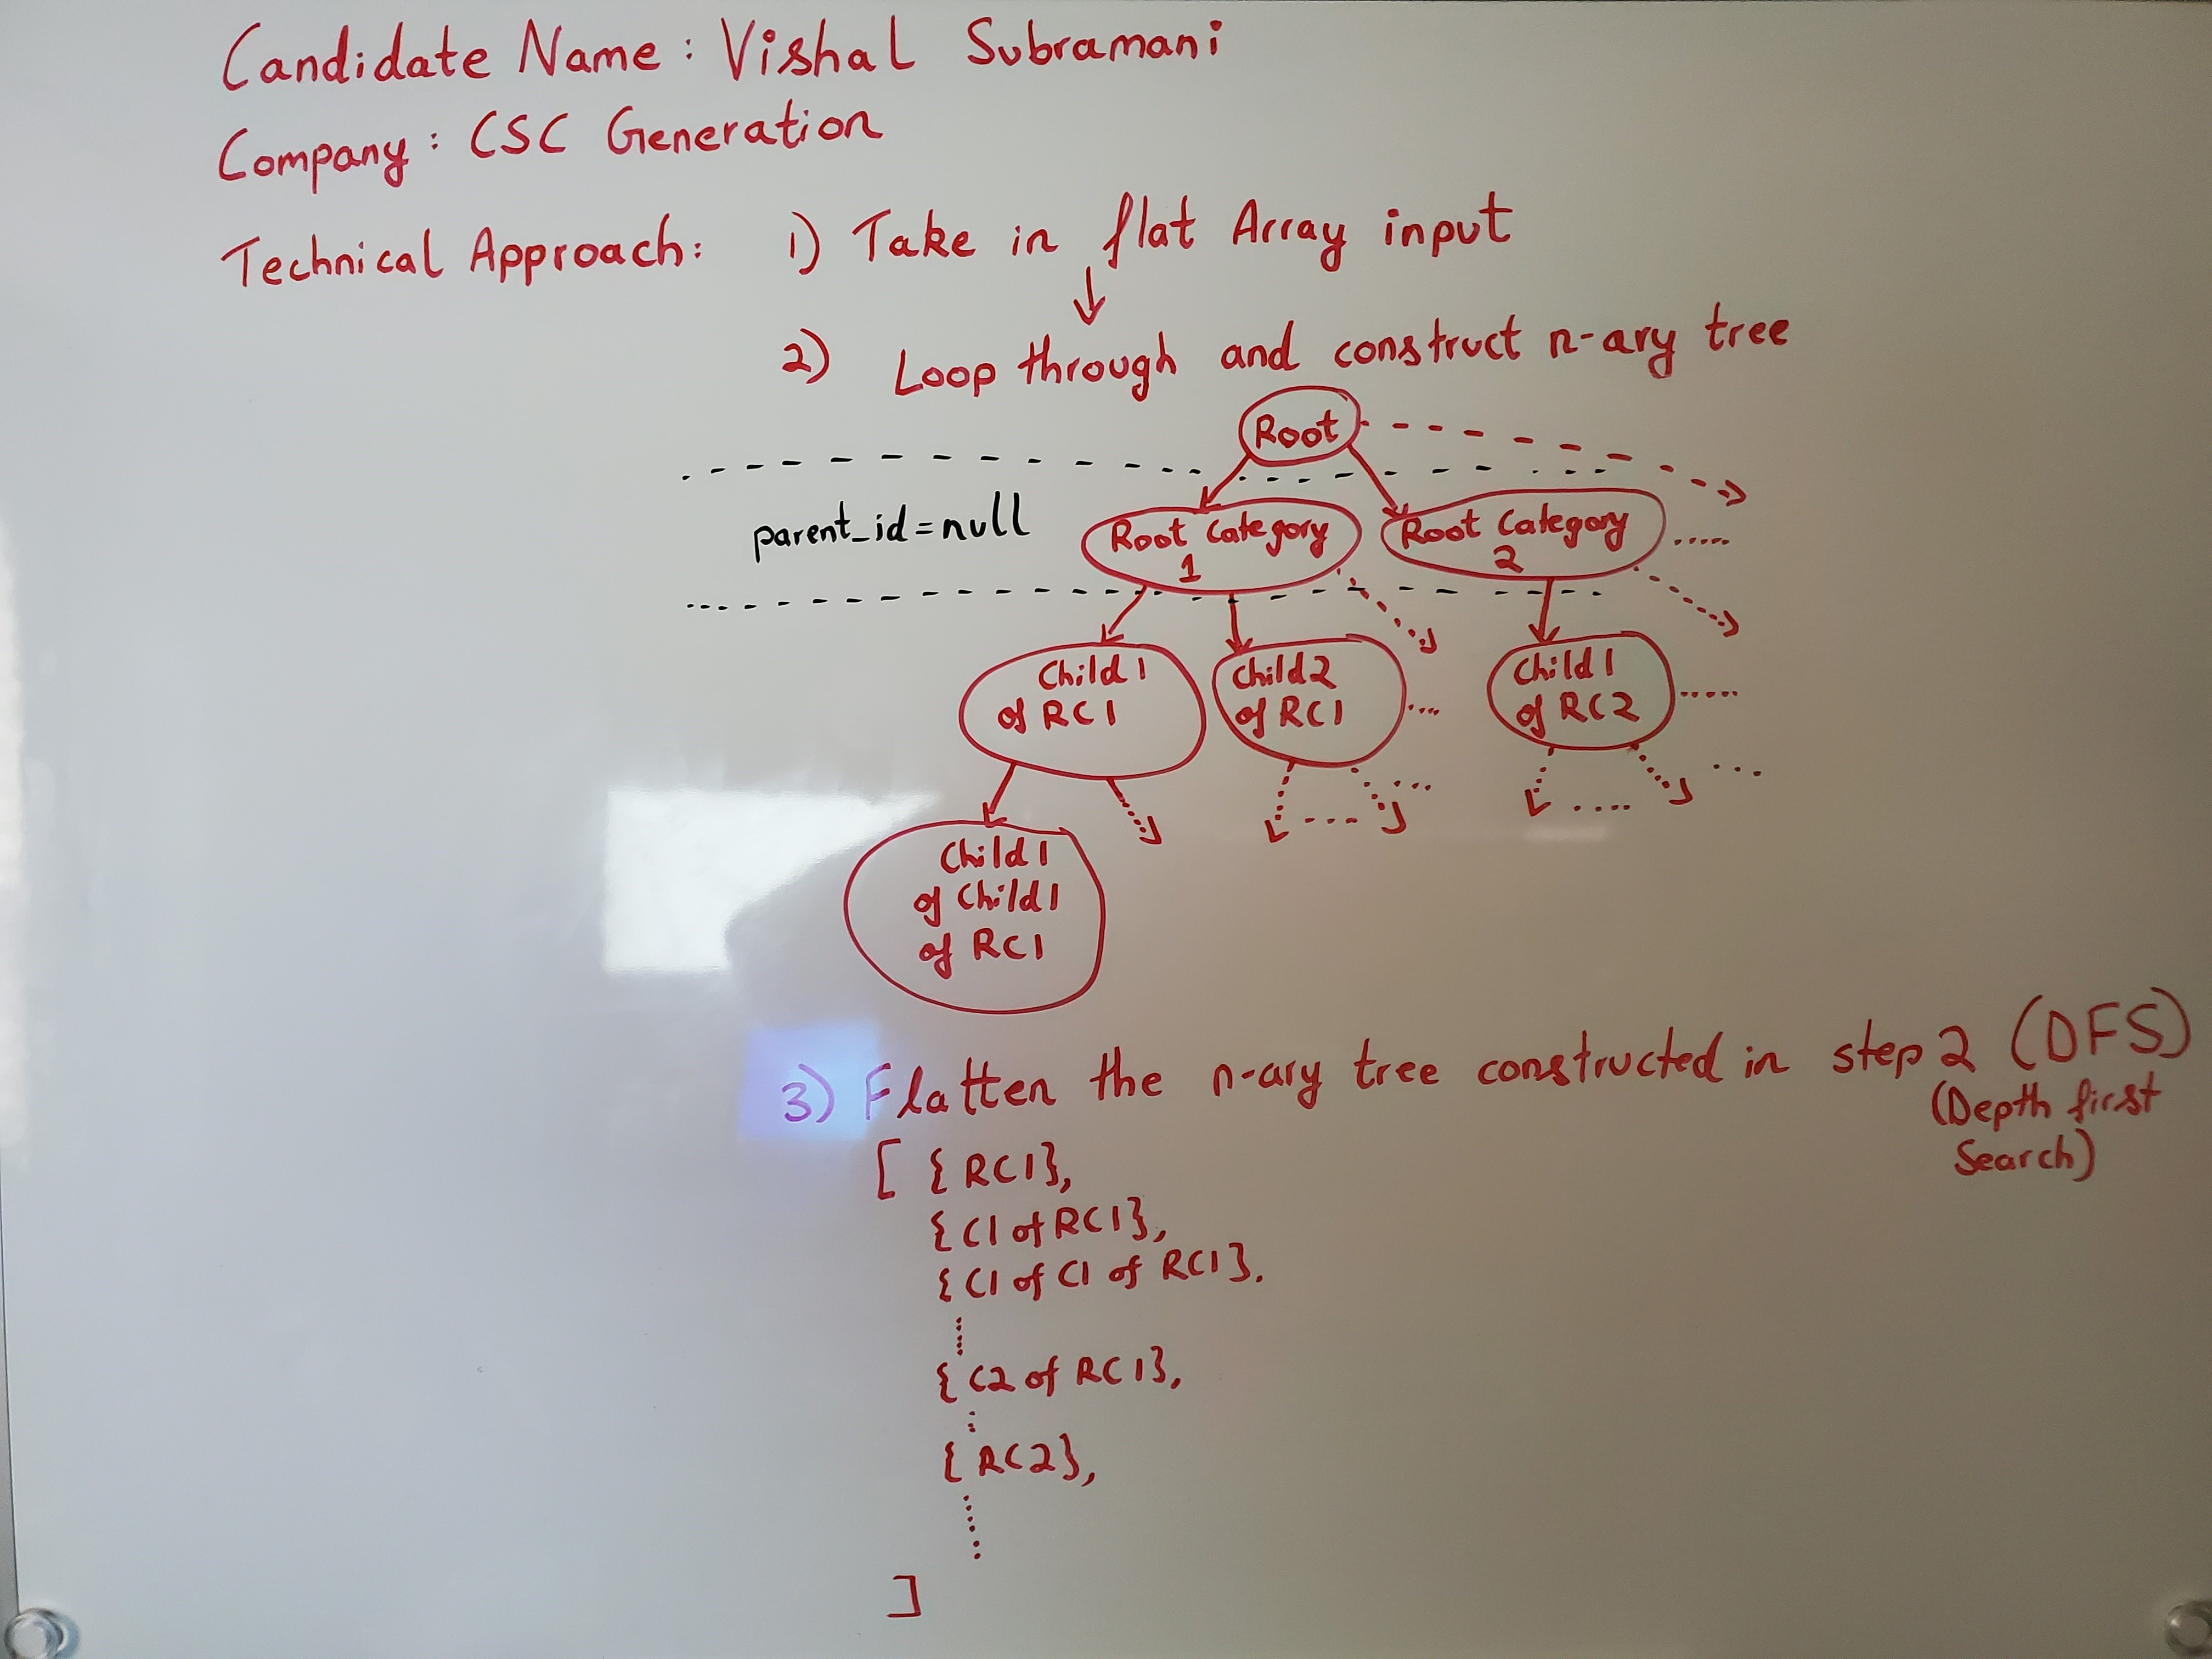 Candidate Name : Vishal Subramani
Company : CSC Generation
Technical Approach: 1) Take in flat Array input
2) Loop through and construct n-ary tree
Root
parent_id=null
Root Category
1
Root Category
2
.....
Child 1
of RC1
Child 2
of RC1
....
Child 1
of RC2
.....
Child 1
of Child 1
of RC1
3) Flatten the n-ary tree constructed in step 2 (DFS)
(Depth first
Search)
[ { RC1},
{ C1 of RC1},
{ C1 of C1 of RC1}.
{ C2 of RC1},
{ RC2},
]